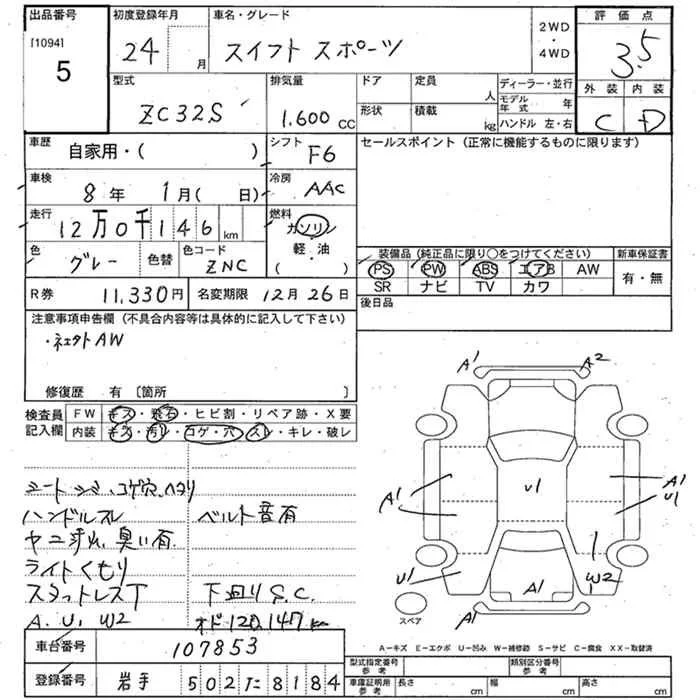 出品番号 [1094] 5
初度登録年月 24 月
車名・グレード スイフト スポーツ
2WD・4WD
評価点 3.5
外装 C 内装 D
型式 ZC32S
排気量 1.600 CC
ドア 形状
定員 人 積載 kg
ディーラー・並行
モデル年式 年
ハンドル 左・右
車歴 自家用・( )
シフト F6
セールスポイント (正常に機能するものに限ります)
車検 8年 1月( 日)
冷房 AAC
走行 12万0千146km
燃料 ガソリン・軽・油 ( )
色 グレー 色替 色コード ZNC
装備品 (純正品に限り〇をつけてください) 新車保証書
PS PW ABS エアB AW 有・無
SR ナビ TV カワ
R券 11,330円 名変期限 12月26日
後日品
注意事項申告欄 (不具合内容等は具体的に記入して下さい)
AW
修復歴 有 〔箇所 〕
検査員記入欄
FW キズ・飛石・ヒビ割・リペア跡・X要
内装 キズ・汚レ・コゲ・穴・スレ・キレ・破レ
シートシミ、コゲ穴、ヘタリ
ハンドルスレ ベルト音有
ヤニ汚れ、臭い有
ライトくもり
スタットレスT 下回りS.C.
A. U1 W2 オド120,147km
A1 A2
A1 U1 A1
A1 U1
U1 A1 W2
スペア
A－キズ E－エクボ U－凹み W－補修跡 S－サビ C－腐食 XX－取替済
車台番号 107853
登録番号 岩手 502 た 8184
型式指定番号 参考 類別区分番号 参考
車庫証明用 参考 長さ cm 幅 cm 高さ cm